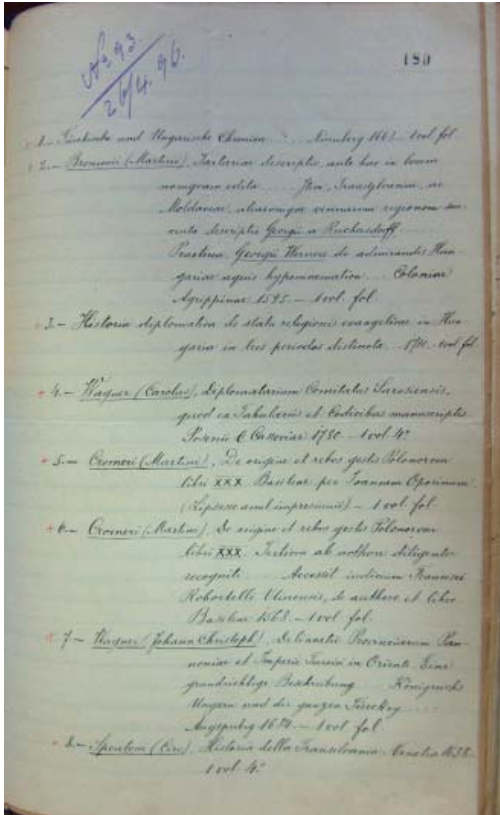 No 93.
26/4. 96.
180
1.– Türckische und Ungarische Chronica ... Nürnberg 1663 – 1 vol. fol
2.– Broniovii (Martini), Tartariae descriptio, ante hac in lucem
nunquam edita ... Item, Transylvaniae, ac
Moldaviae, aliarumque vicinarum regionum suc-
cincta descriptio Georgii a Reichersdorff ...
Praeterea, Georgii Werneri de admirandis Hun-
gariae aquis hypomnemation ... Coloniae
Agrippinae 1595 – 1 vol. fol.
3.– Historia diplomatica de statu religionis evangelicae in Hun-
garia in tres periodos distincta ... 1710. 1 vol fol
4.– Wagner (Carolus), Diplomatarium Comitatus Sarosiensis,
quod ex Tabulariis et Codicibus manuscriptis
Posonii & Cassoviae 1780 – 1 vol. 4º
5.– Cromeri (Martini), De origine et rebus gestis Polonorum
libri XXX Basileae per Ioannem Oporinum
– 1 vol. fol.
6.– Cromeri (Martini), De origine et rebus gestis Polonorum
libri XXX. Tertium ab authore diligenter
recogniti. Accessit iudicium Francisci
Robortelli Utinensis, de authore et libro
Basileae 1568. – 1 vol. fol.
7.– Wagner (Johann Christoph), Delineatio Provinciarum Pan-
noniae et Imperii Turcici in Oriente. Eine
grundrichtige Beschreibung ... Königreichs
Ungarn und der ganzen Türckey ...
Augspurg 1684. – 1 vol. fol.
8.– Spontoni (Ciro), Historia della Transilvania. Venetia 1638.
1 vol. 4º